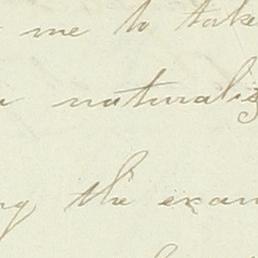 me to take
naturalis
ng the exam